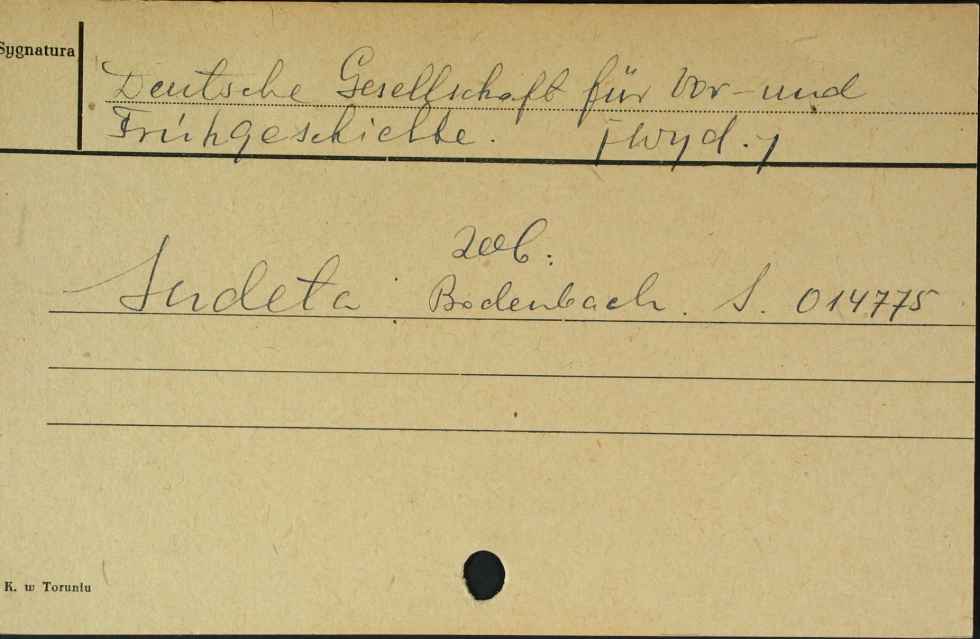 Sygnatura
Deutsche Gesellschaft für Vor- und
Frühgeschichte. [wyd.]
zob:
Sudeta Bodenbach. S. 014775
K. w Toruniu